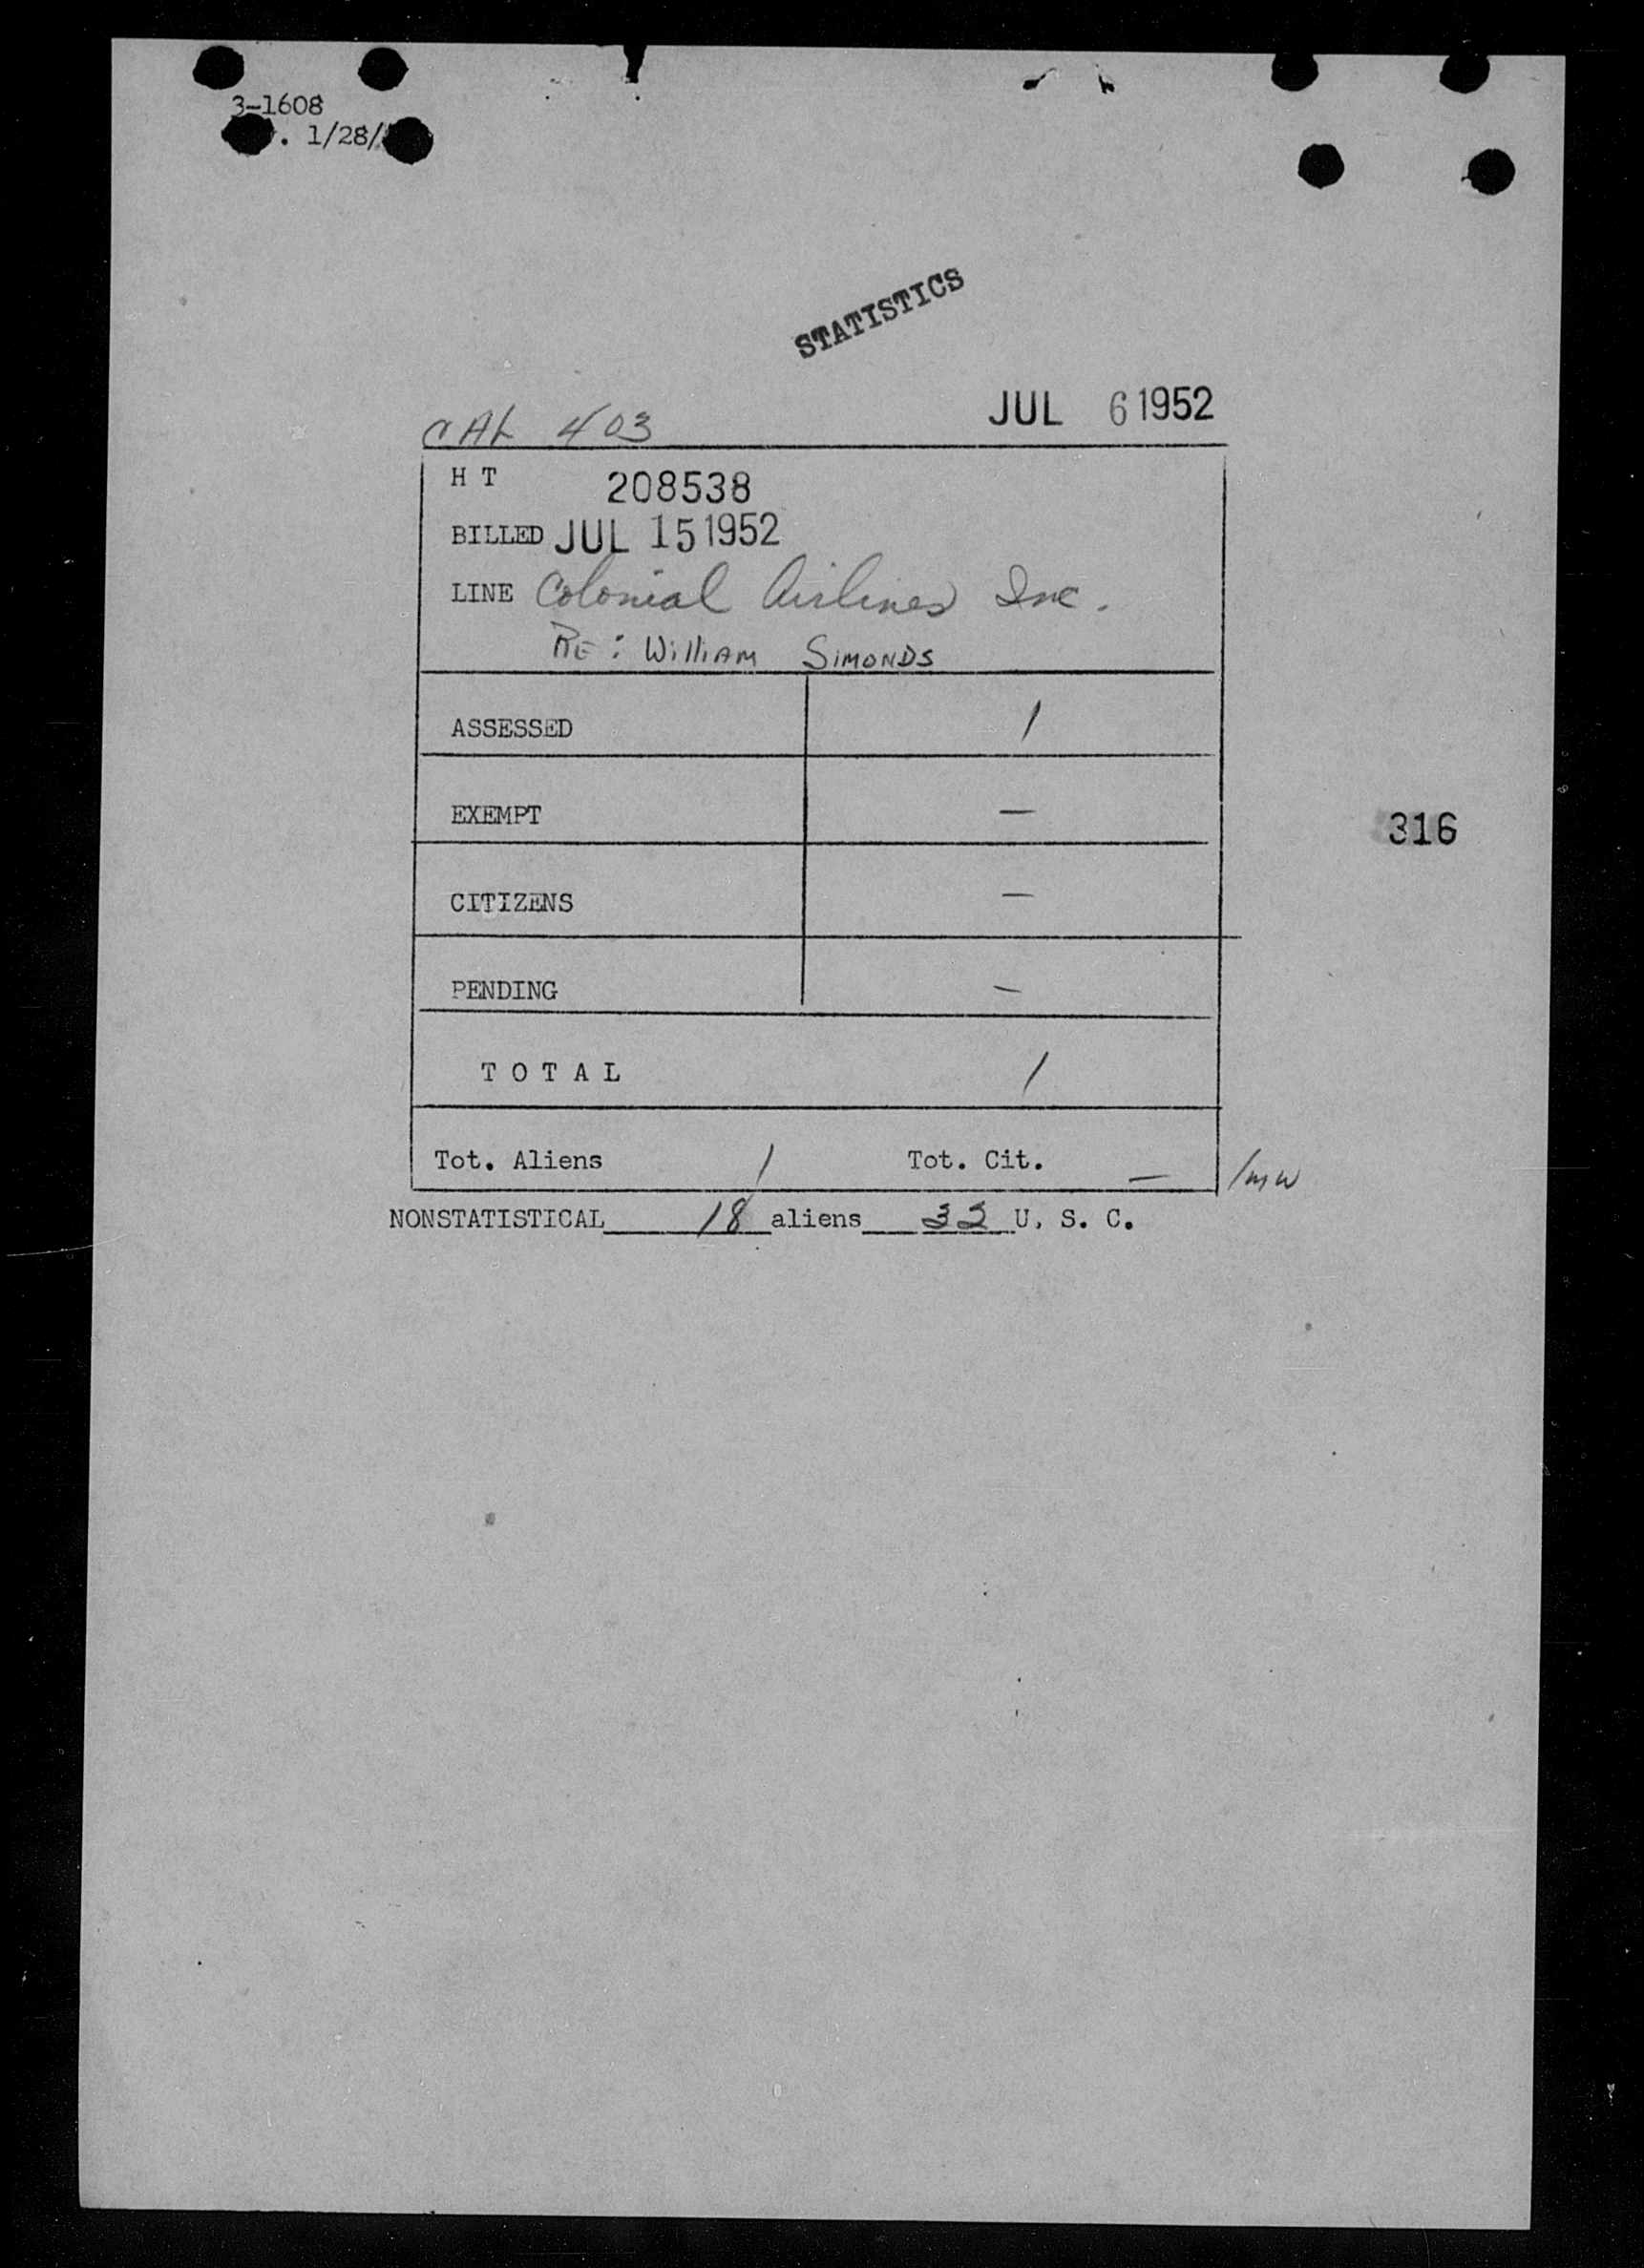 3-1608
. 1/28/
STATISTICS
CAL 403 JUL 6 1952
H T 208538
BILLED JUL 15 1952
LINE Colonial Airlines Inc.
RE: William Simonds
ASSESSED 1
EXEMPT —
316
CITIZENS —
PENDING —
TOTAL 1
Tot. Aliens 1 Tot. Cit. — /mw
NONSTATISTICAL 18 aliens 32 U. S. C.